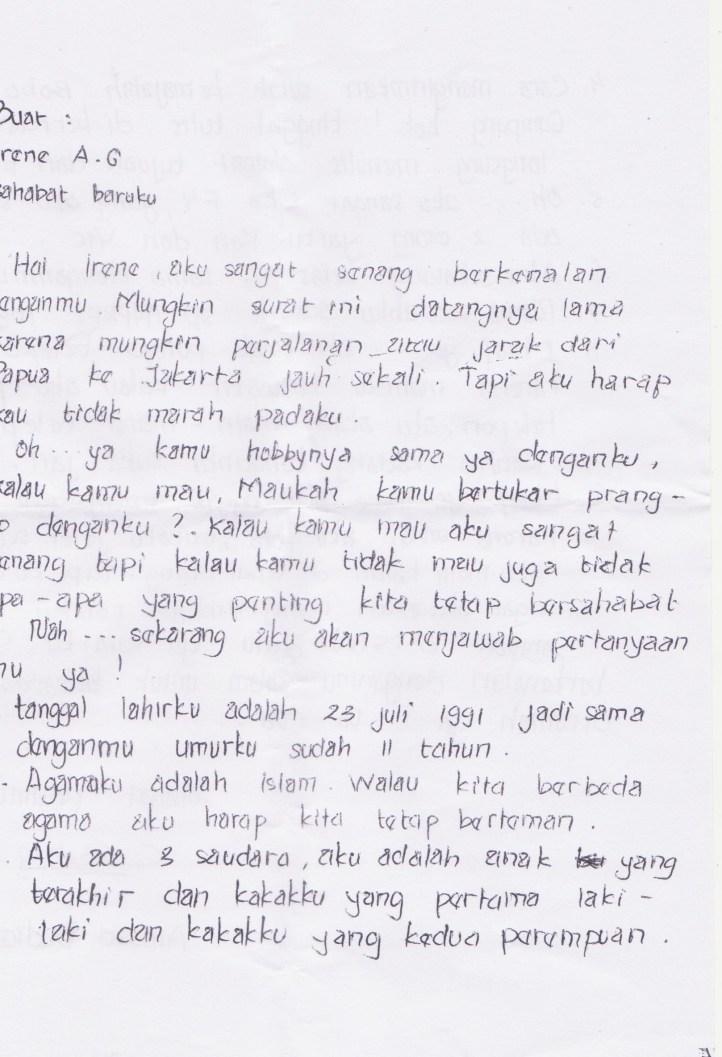 Buat :
rene A.G
sahabat baruku
Hai Irene, aku sangat senang berkenalan
enganmu Mungkin surat ini datangnya lama
karena mungkin perjalanan atau jarak dari
Papua ke Jakarta jauh sekali. Tapi aku harap
kau tidak marah padaku.
Oh ya kamu hobbynya sama ya denganku,
kalau kamu mau, Maukah kamu bertukar prang-
o denganku ? Kalau kamu mau aku sangat
enang tapi kalau kamu tidak mau juga tidak
pa-apa yang penting kita tetap bersahabat
Nah --- sekarang aku akan menjawab pertanyaan
mu ya !
tanggal lahirku adalah 23 juli 1991 jadi sama
denganmu umurku sudah 11 tahun.
- Agamaku adalah islam. Walau kita berbeda
agama aku harap kita tetap berteman.
. Aku ada 3 saudara, aku adalah anak yang
terakhir dan kakakku yang pertama laki-
laki dan kakakku yang kedua perempuan.